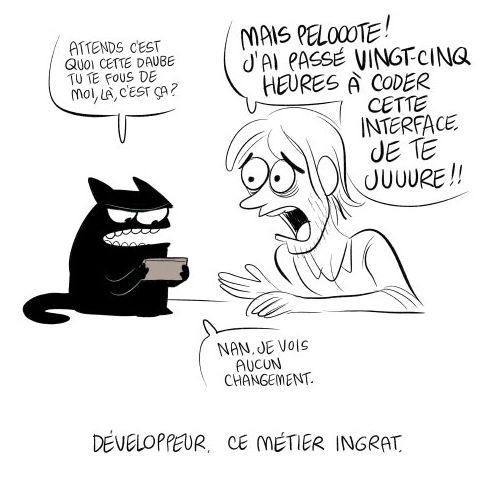 ATTENDS C'EST
QUOI CETTE DAUBE
TU TE FOUS DE
MOI, LÀ, C'EST ÇA?
MAIS PELOOOTE!
J'AI PASSÉ VINGT-CINQ
HEURES À CODER
CETTE
INTERFACE.
JE TE
JUUURE!!
NAN, JE VOIS
AUCUN
CHANGEMENT.
DÉVELOPPEUR. CE MÉTIER INGRAT.